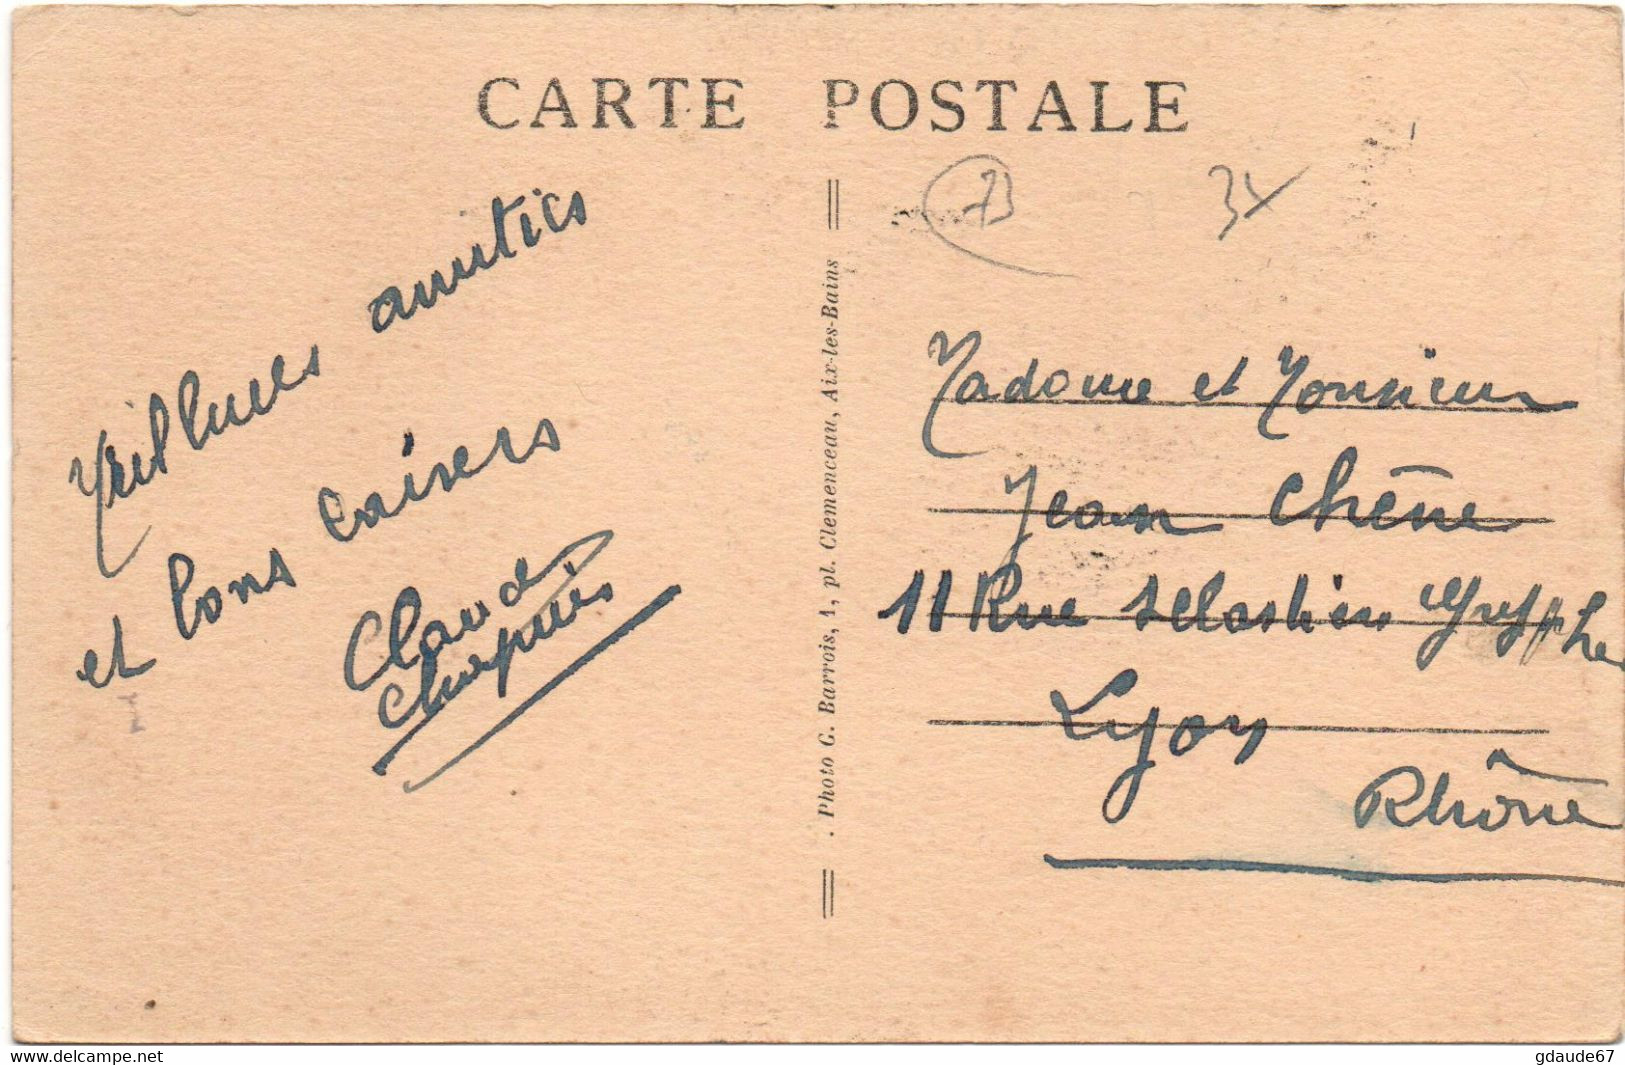 CARTE POSTALE
73
Meilleures amitiés
et bons baisers
Claude
Chapuis
. Photo G. Barrois, 1, pl. Clemenceau, Aix-les-Bains
Madame et Monsieur
Jean Chêne
11 Rue Sébastien Gryphe
Lyon
Rhône
www.delcampe.net
gdaude67